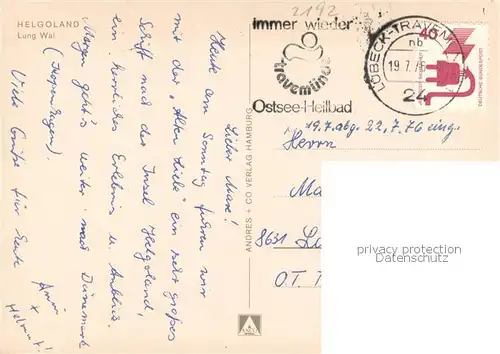 HELGOLAND
Lung Wai
Lieber Max!
Heute am Sonntag fuhren wir
mit der „Alten Liebe" ein sehr großes
Schiff nach der Insel Helgoland,
ein herrliches Erlebnis u. Anblick.
Morgen geht's weiter nach Dänemark
(Kopenhagen).
Viele Grüße für Euch
+
Helmut!
ANDRES + CO VERLAG HAMBURG
2192
Immer wieder
travemünde
Ostsee-Heilbad
LÜBECK-TRAVEM
nb
19.7.76
24
40
DEUTSCHE BUNDESPOST
19.7. abg. 22.7.76 eing.
Herrn
Ma
8631
OT T
privacy protection
Datenschutz